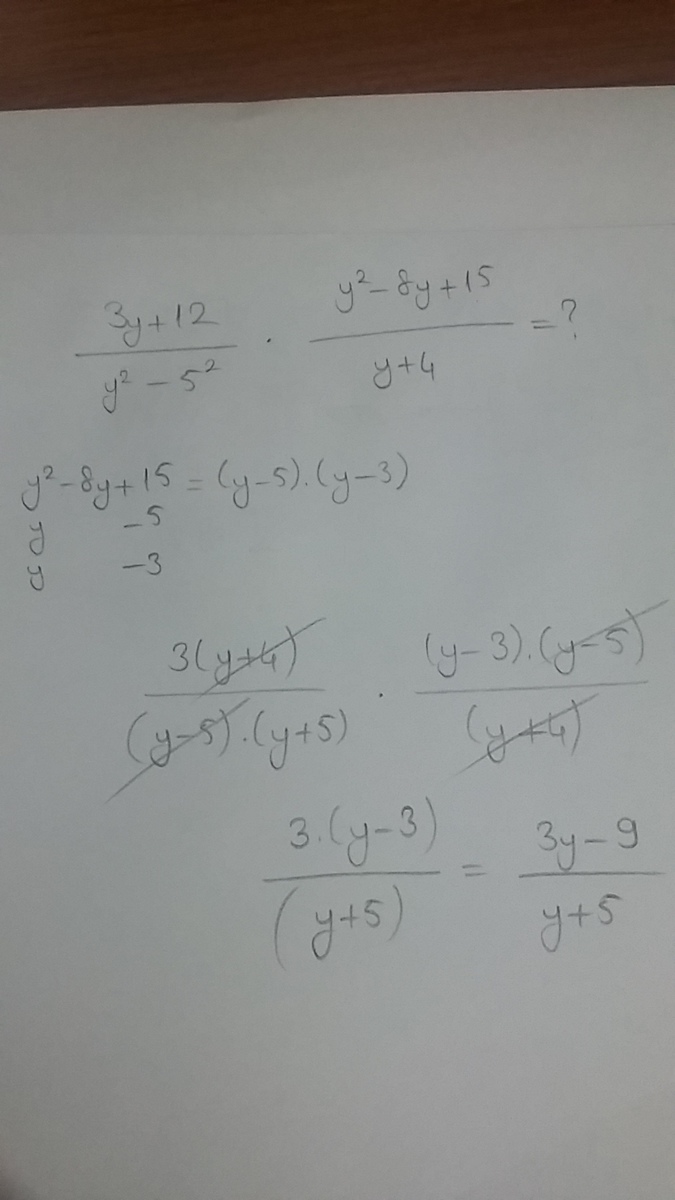 3y+12 / y² – 5² . y² – 8y+15 / y+4 = ?
y² – 8y+15 = (y–5).(y–3)
y –5
y –3
3(y+4) / (y–5).(y+5) . (y–3).(y–5) / (y+4)
3.(y–3) / (y+5) = 3y–9 / y+5